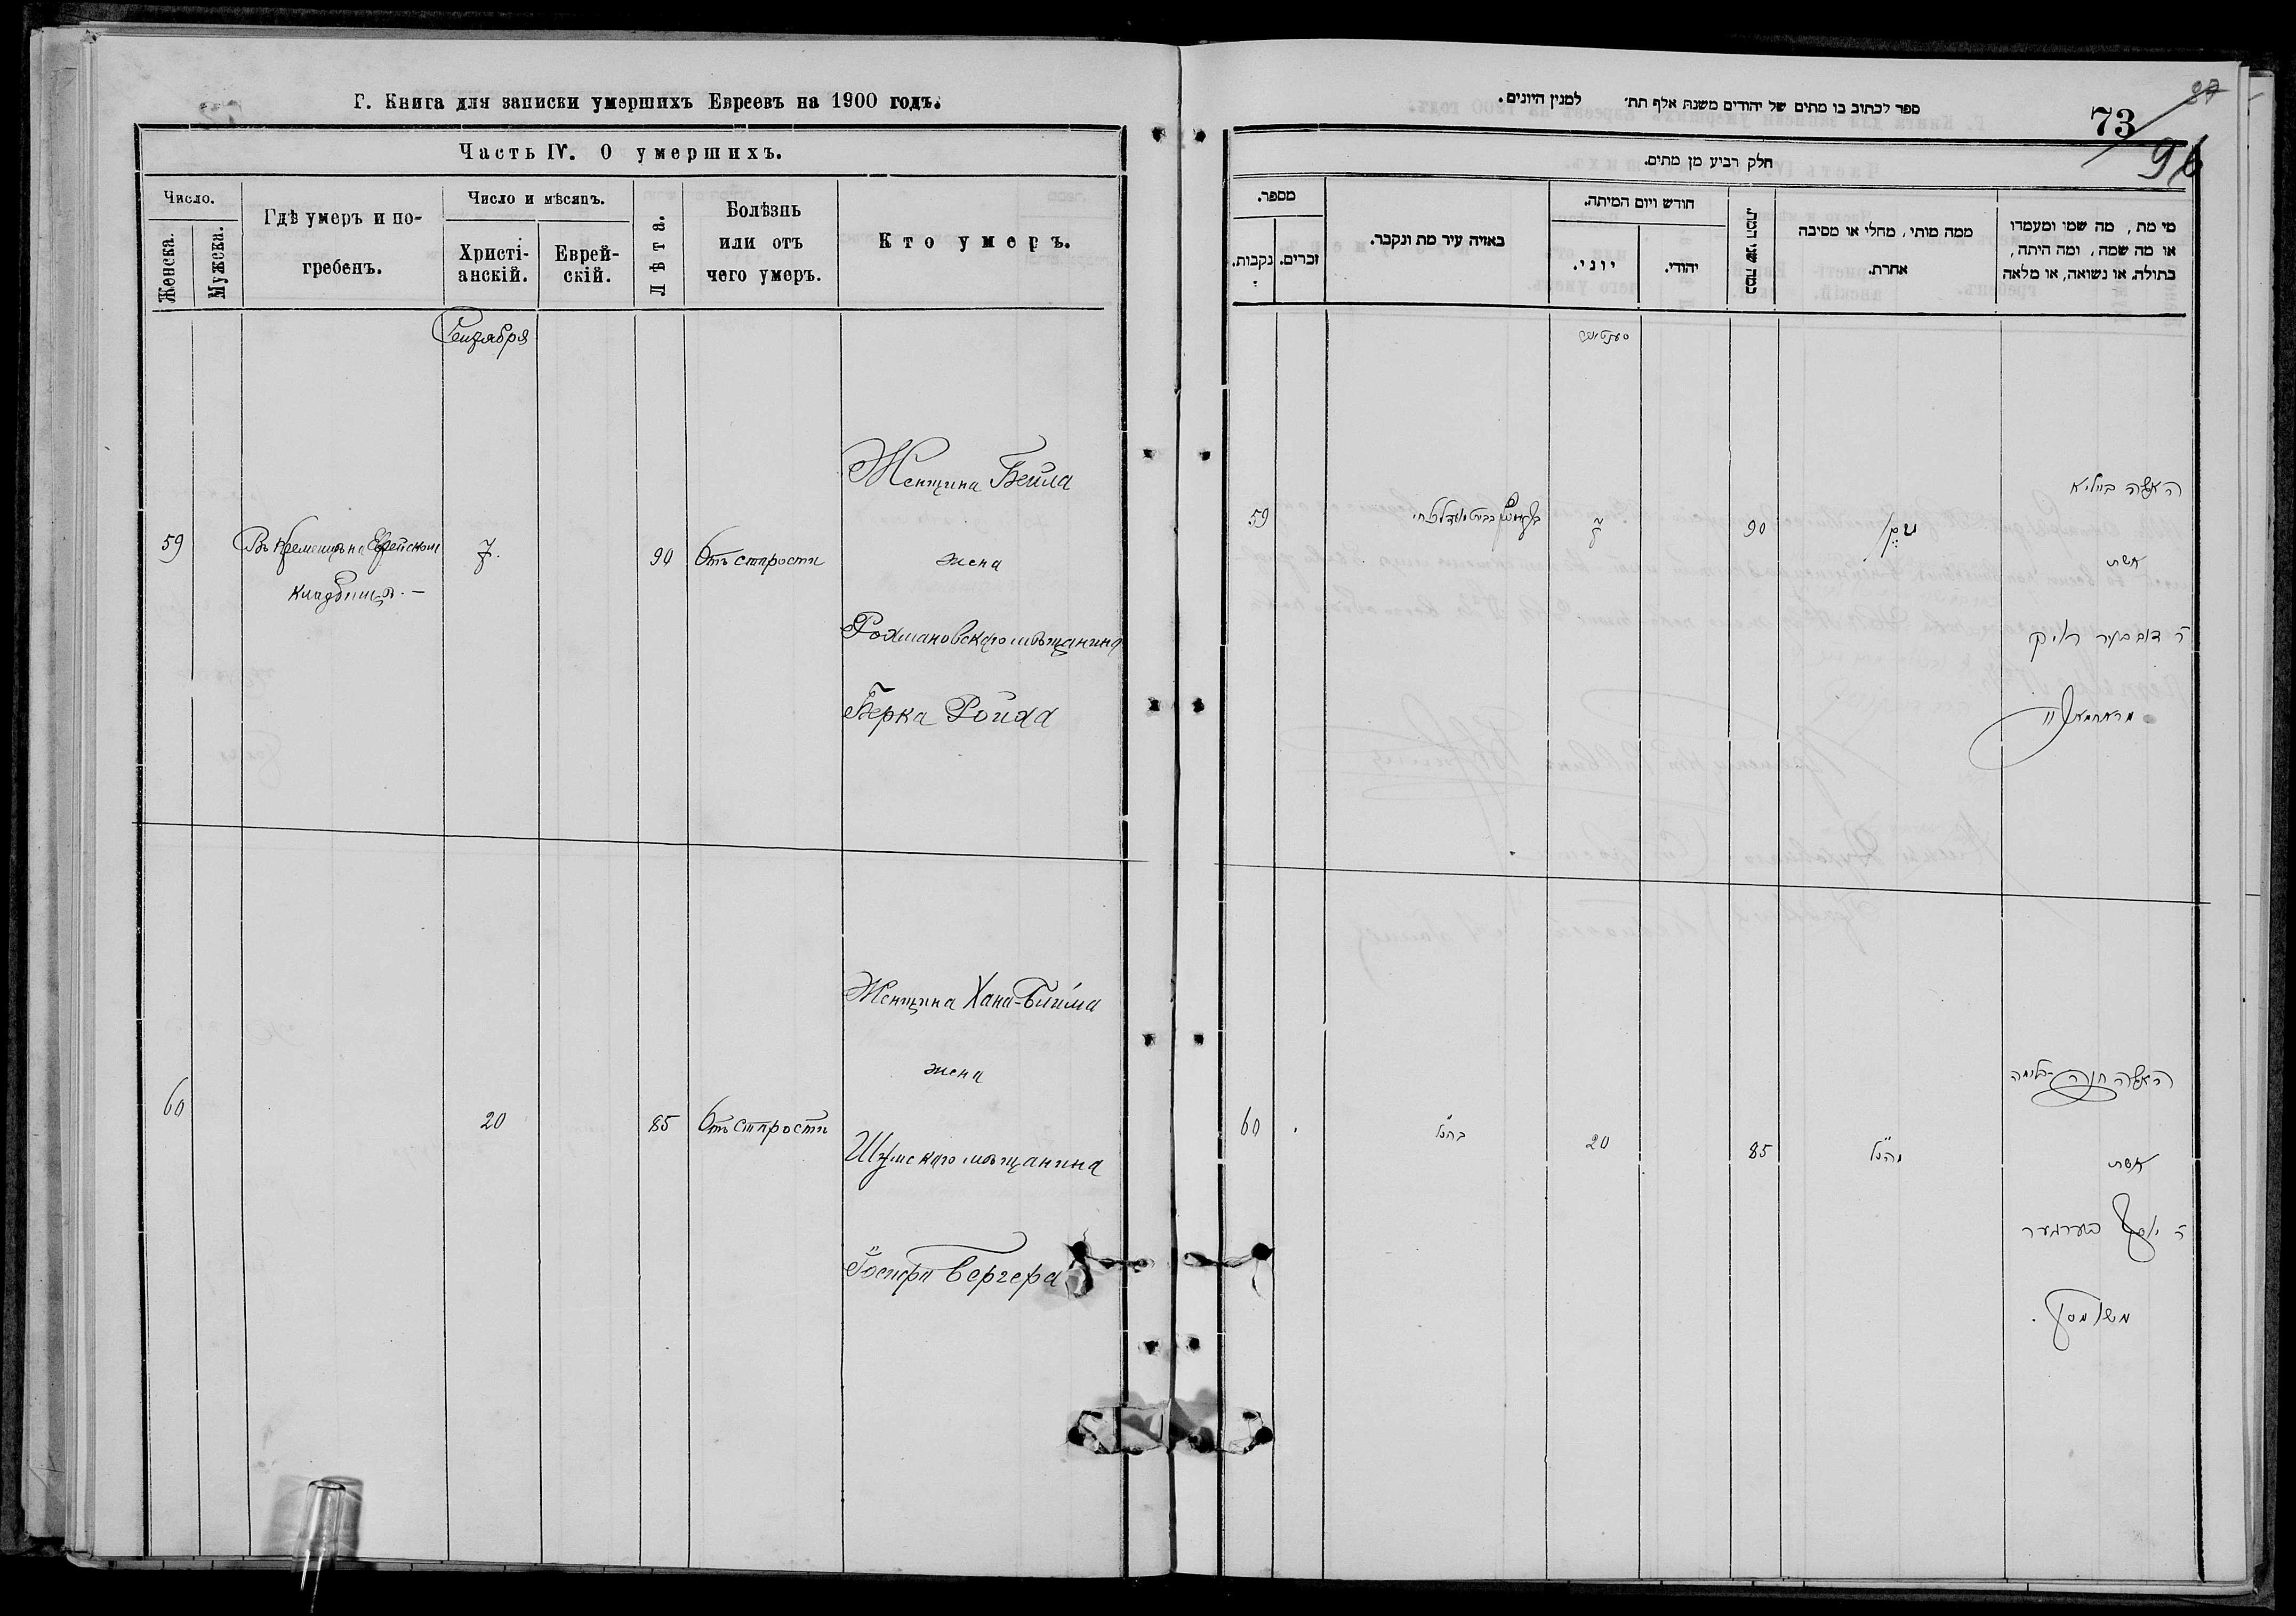 Г. Книга для записки умершихъ Евреевъ на 1900 годъ.
Часть IV. О умершихъ.
Число.
Женска.
Мужска.
Гдѣ умеръ и по-
гребенъ.
Число и мѣсяцъ.
Христі-
анскій.
Еврей-
скій.
Лѣта.
Болѣзнь
или отъ
чего умеръ.
Кто умеръ.
Сентября
59
Въ Кременцѣ на Еврейском
кладбищѣ. —
7.
90
Отъ старости
Женщина Бейла
жена
Рохмановскаго мѣщанина
Берка Ройха
60
20
85
Отъ старости
Женщина Хана-Блима
жена
Шумскаго мѣщанина
Іосифа Бергера
ספר לכתוב בו מתים של יהודים משנת אלף תת׳ למנין היונים.
73
96
חלק רביע מן מתים.
מספר.
נקבות.
זכרים.
באיזה עיר מת ונקבר.
חודש ויום המיתה.
יוני.
יהודי.
כמה שני המת.
ממה מותי, מחלי או מסיבה
אחרת.
מי מת, מה שמו ומעמדו
או מה שמה, ומה היתה,
בתולה, או נשואה, או מלאה
59
7
90
האשה ביילא
אשת
ר׳ דוב בער רויך
60
בהנ״ל
20
85
מהנ״ל
האשה חנה-בלימה
אשת
ר׳ יוסף בערגער
משומסק.